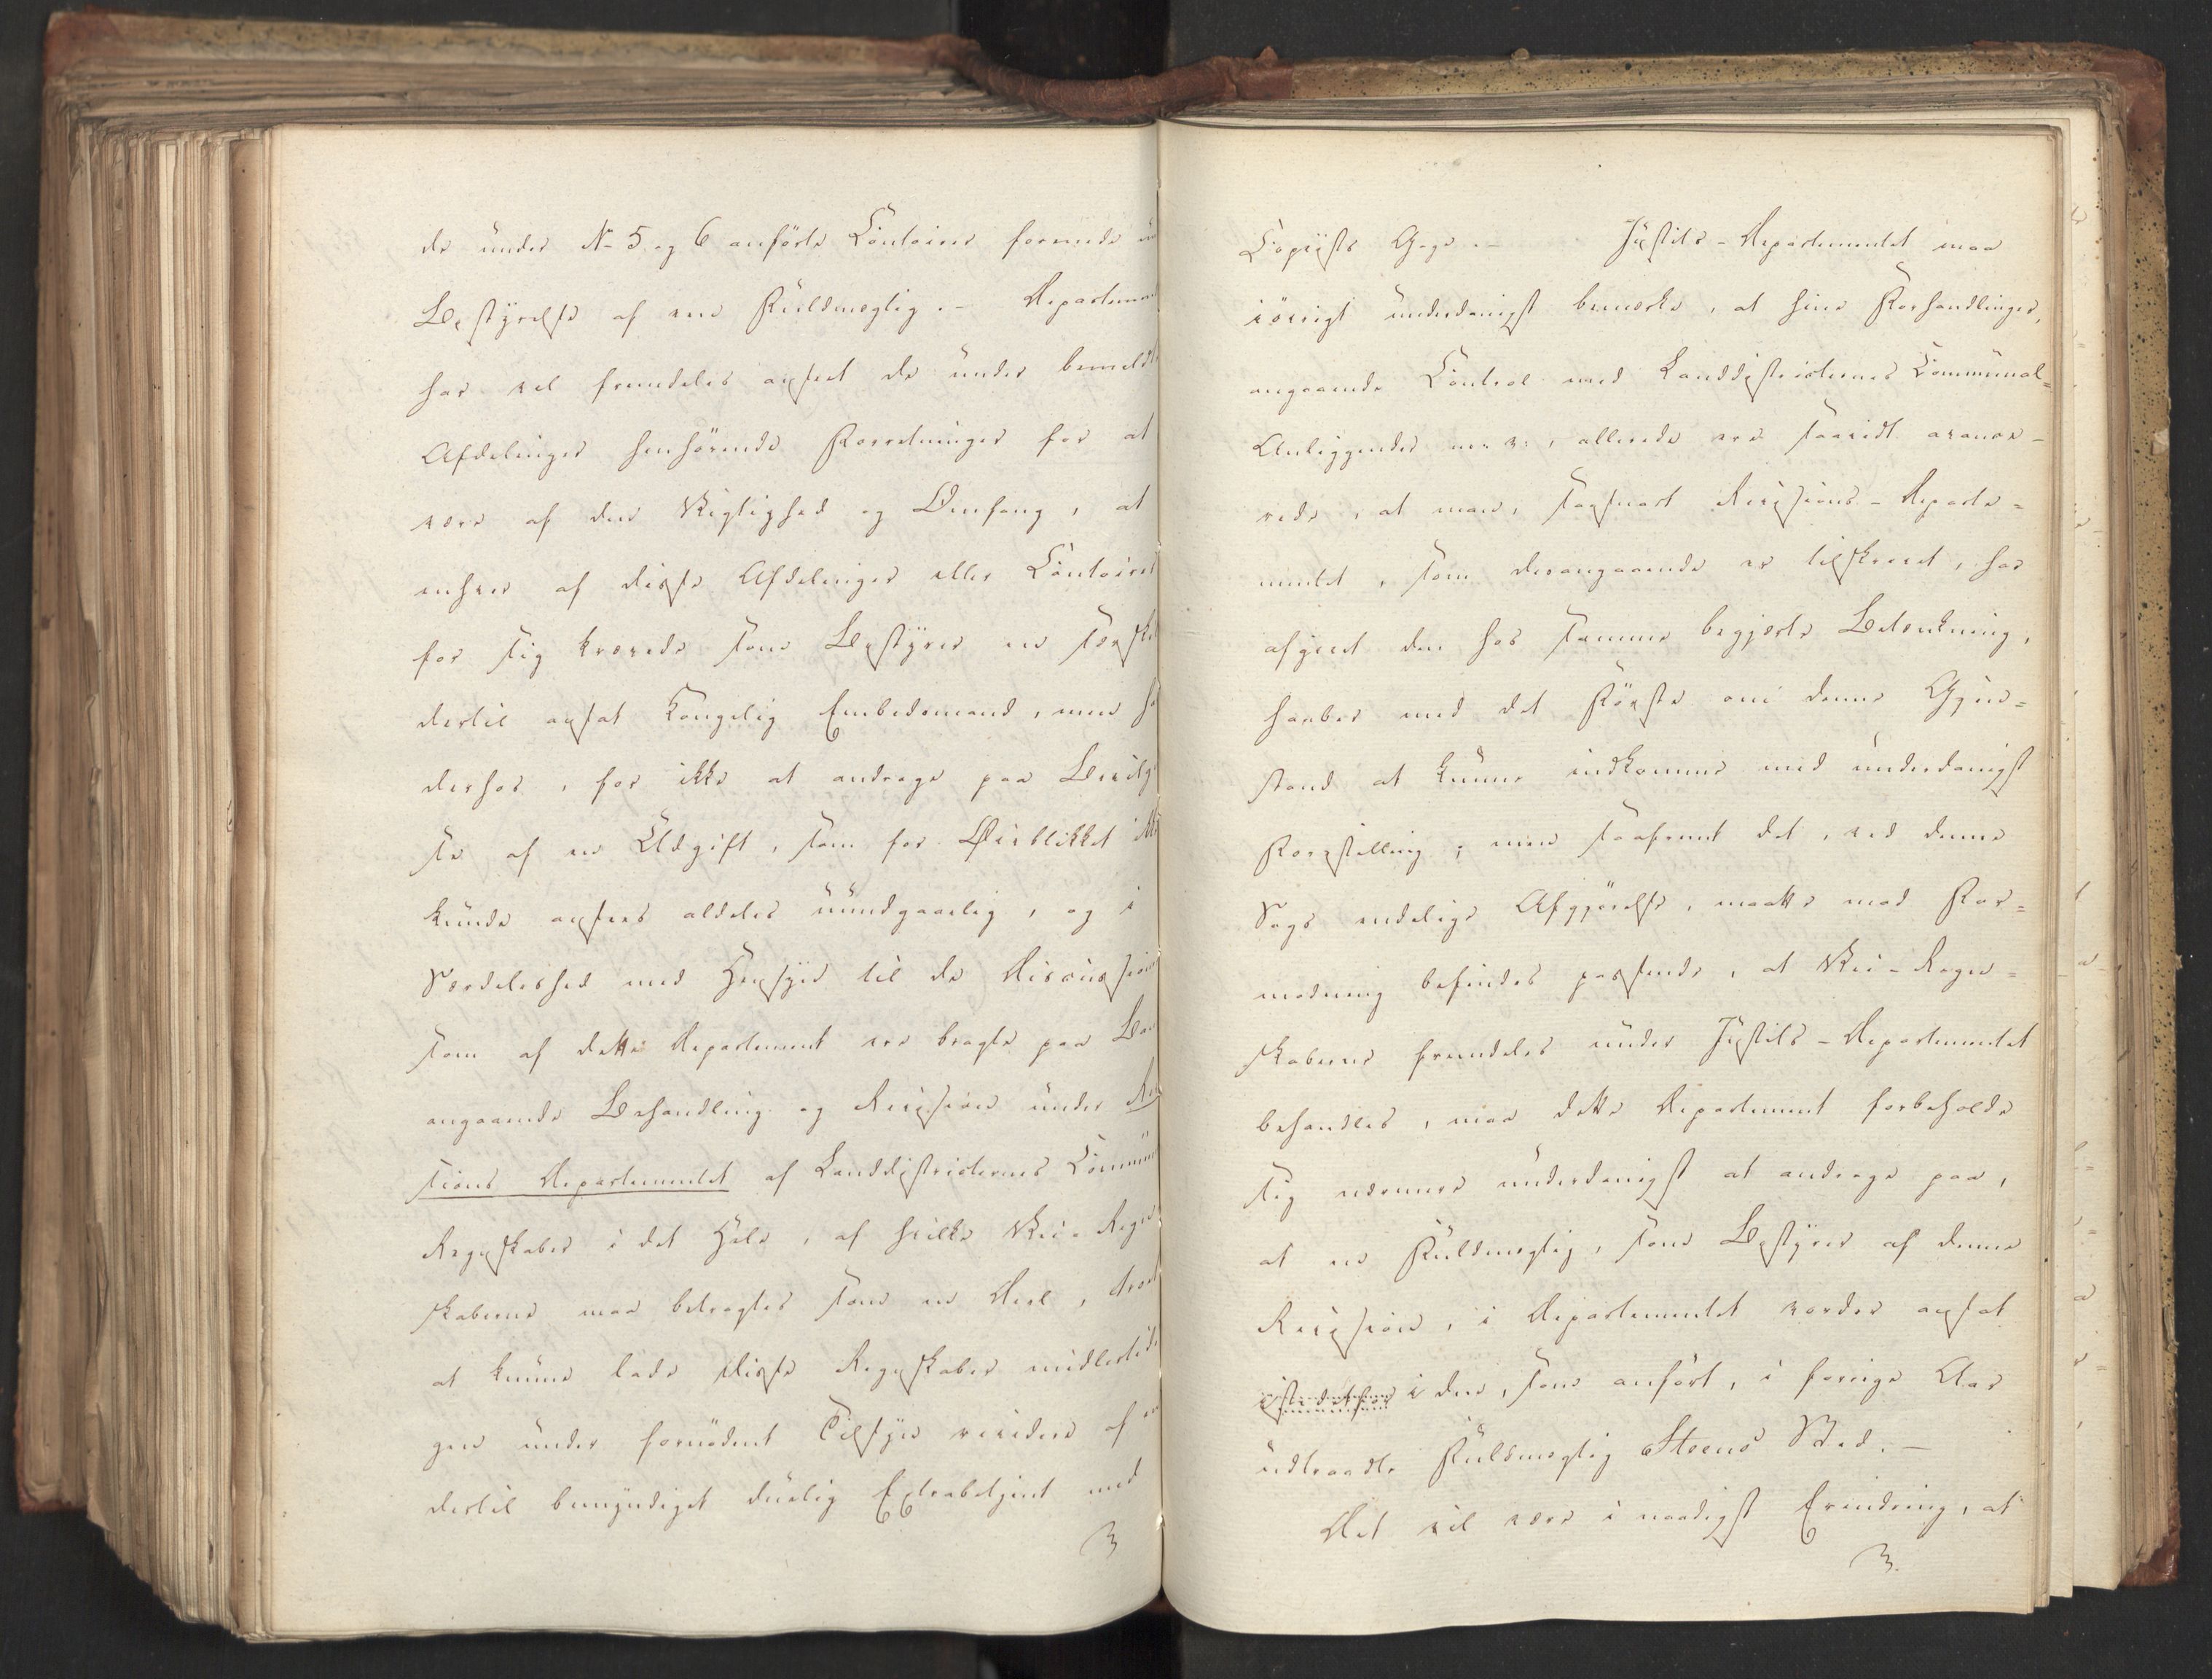 de under No 5 og 6 anförte Contoirer forenede un
Bestyrelse af een Fuldmægtig. - Departemen
har vel fremdeles anseet de under bemeldte
Afdelinger henhörende Forretninger for at
være af den Vigtighed og Omfang, at
enhver af disse Afdelinger eller Contoirer
for sig krævede som Bestyrer en særskil
dertil ansat Kongelig Embedsmand, men ha
derhos, for ikke at andrage paa Bevilgel
se af en Udgift, som for Øieblikket ikke
kunde ansees aldeles uundgaaelig, og i
Særdeleshed med Hensyn til de Discussion
som af dette Departement ere bragte paa Ban
angaaende Behandling og Revision under Revi
sions Departementet af Landdistricternes Commun
Regnskaber i det Hele, af hvilke Vei-Regn
skaberne maa betragtes som en Deel, troet
at kunne lade disse Regnskaber midlertidi
gen under fornödent Tilsyn revidere af en
dertil bemyndiget duelig Extrabetjent med
Copiists Gage. - Justits-Departementet maa
iövrigt underdanigst bemærke, at hine Forhandlinger,
angaaende Control med Landdistricternes Communal=
Anliggender m: v:, allerede ere saavidt avance-
rede, at man, saasnart Revisions-Departe=
mentet, som derangaaende er tilskrevet, har
afgivet den hos samme begjerte Betænkning,
haaber med det Förste om denne Gjen=
stand at kunne indkomme med underdanigst
Forestilling; men saafremt det, ved denne
Sags endelige Afgjörelse, maatte mod For=
modning befindes passende, at Vei-Regn=
skaberne fremdeles under Justits-Departementet
behandles, maa dette Departement forbeholde
sig nærmere underdanigst at andrage paa,
at en Fuldmægtig, som Bestyrer af denne
Revision, i Departementet vorder ansat
istedetfor i den, som anfört, i forrige Aar
udtraadte Fuldmægtig Steens Sted. -
Det vil være i naadigst Erindring, at